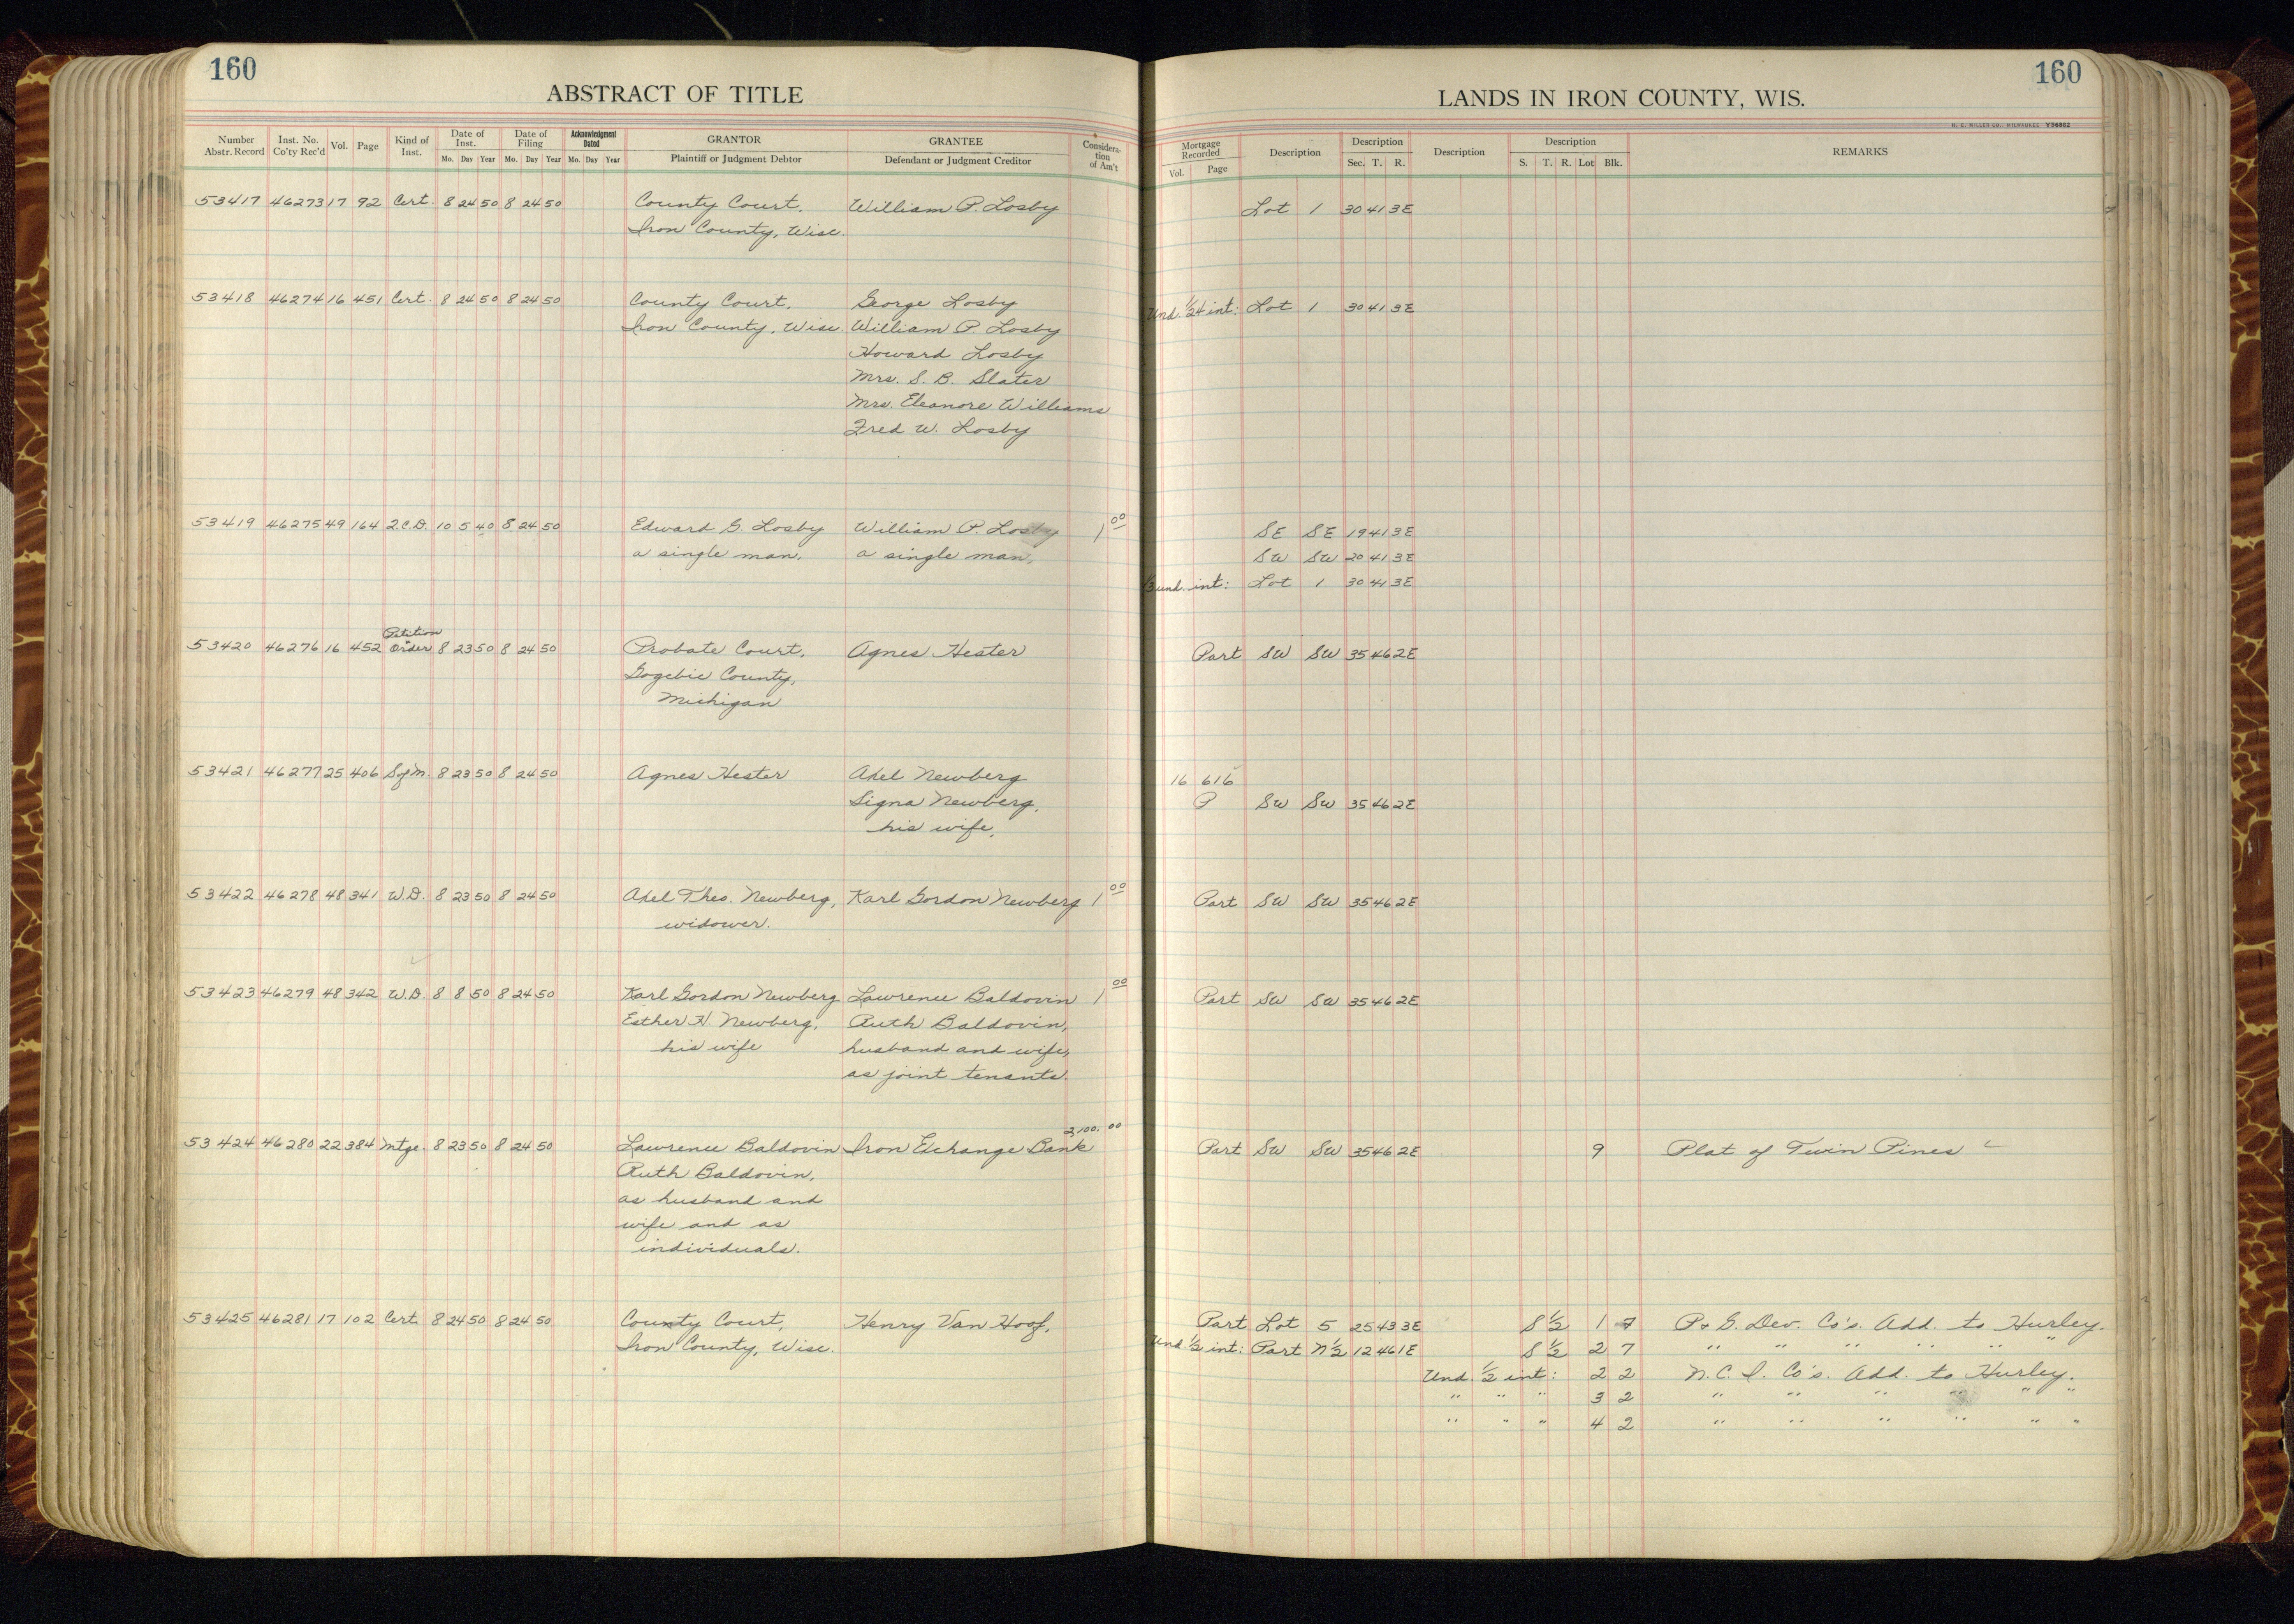 160
ABSTRACT OF TITLE
Number Abstr. Record | Inst. No. Co'ty Rec'd | Vol. | Page | Kind of Inst. | Date of Inst. Mo. Day Year | Date of Filing Mo. Day Year | Acknowledgment Dated Mo. Day Year | GRANTOR Plaintiff or Judgment Debtor | GRANTEE Defendant or Judgment Creditor | Considera-tion of Am't
53417 46273 17 92 Cert. 8 24 50 8 24 50 County Court, William P. Losby
Iron County, Wisc.
53418 46274 16 451 Cert. 8 24 50 8 24 50 County Court, George Losby
Iron County, Wisc. William P. Losby
Howard Losby
Mrs. S. B. Slater
Mrs. Eleanore Williams
Fred W. Losby
53419 46275 49 164 Q.C.D. 10 5 40 8 24 50 Edward G. Losby William P. Losby 1 00
a single man, a single man,
Petition
53420 46276 16 452 Order 8 23 50 8 24 50 Probate Court, Agnes Hester
Gogebic County,
Michigan
53421 46277 25 406 S of M. 8 23 50 8 24 50 Agnes Hester Axel Newberg
Signa Newberg,
his wife,
53422 46278 48 341 W.D. 8 23 50 8 24 50 Axel Theo. Newberg, Karl Gordon Newberg 1 00
widower.
53423 46279 48 342 W.D. 8 8 50 8 24 50 Karl Gordon Newberg Lawrence Baldovin 1 00
Esther H Newberg, Ruth Baldovin,
his wife husband and wife,
as joint tenants.
53424 46280 22 384 Mtge. 8 23 50 8 24 50 Lawrence Baldovin Iron Exchange Bank 2,100. 00
Ruth Baldovin,
as husband and
wife and as
individuals.
53425 46281 17 102 Cert. 8 24 50 8 24 50 County Court, Henry Van Hoof,
Iron County, Wisc.
160
LANDS IN IRON COUNTY, WIS.
H. C. MILLER CO., MILWAUKEE Y36862
Mortgage Recorded Vol. Page | Description | Description Sec. T. R. | Description | Description S. T. R. Lot Blk. | REMARKS
Lot 1 30 41 3E
Und. 1/24 int: Lot 1 30 41 3E
SE SE 19 41 3E
SW SW 20 41 3E
und. int: Lot 1 30 41 3E
Part SW SW 35 46 2E
16 616
P SW SW 35 46 2E
Part SW SW 35 46 2E
Part SW SW 35 46 2E
Part SW SW 35 46 2E 9 Plat of Twin Pines
Part Lot 5 25 43 3E S 1/2 1 7 P & G. Dev. Co's. Add. to Hurley.
Und. 1/2 int: Part N 1/2 12 46 1E S 1/2 2 7 " " " " " "
Und. 1/2 int: 2 2 N. C. I. Co's. Add. to Hurley.
" " " 3 2 " " " " " "
" " " 4 2 " " " " " "